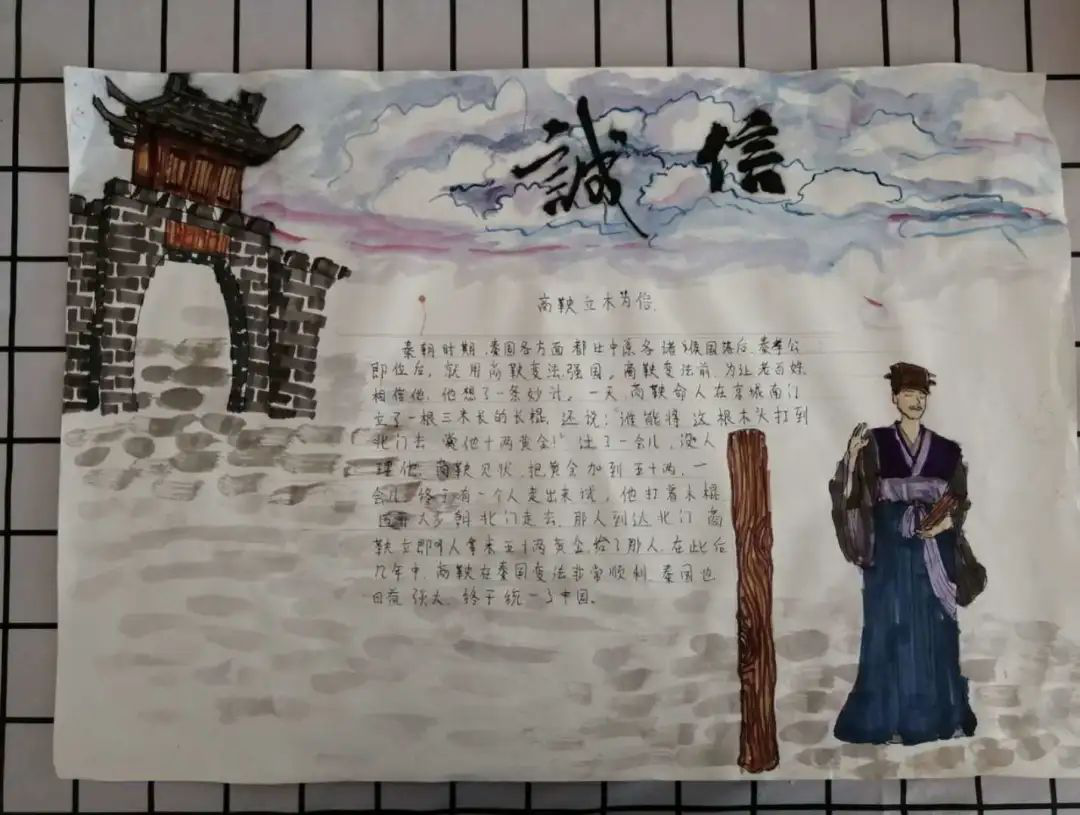 誠信
商鞅立木为信.
秦朝时期,秦国各方面都比中原各诸侯国落后,秦孝公
即位后,就用商鞅变法,强国。商鞅变法前,为让老百姓
相信他,他想了一条妙计。一天,商鞅命人在京城南门
立了一根三米长的长棍,还说:"谁能将这根木头打到
北门去,赏他十两黄金!"过了一会儿,没人
理他,商鞅见状,把黄金加到五十两,一
会儿,终于有一个人走出来试,他打着木棍
大步朝北门走去,那人到达北门,商
鞅立即叫人拿来五十两黄金,给了那人,在此后
几年中,商鞅在秦国变法非常顺利,秦国也
日益强大,终于统一了中国。